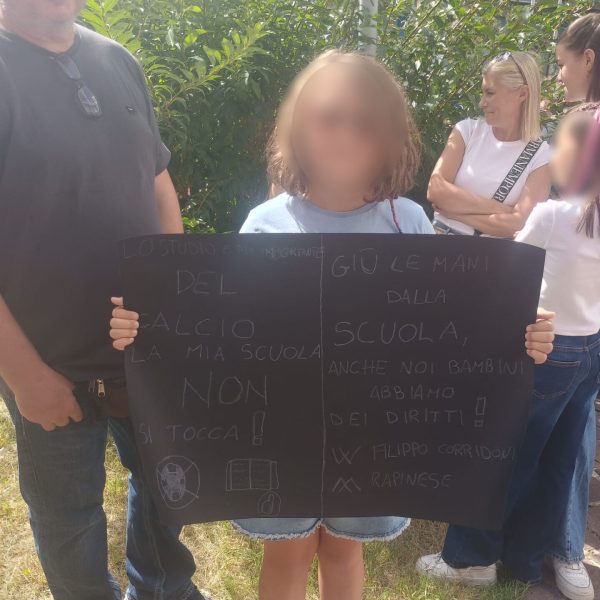 LO STUDIO È PIÙ IMPORTANTE
DEL
CALCIO
LA MIA SCUOLA
NON
SI TOCCA!
GIÙ LE MANI
DALLA
SCUOLA,
ANCHE NOI BAMBINI
ABBIAMO
DEI DIRITTI!
W FILIPPO CORRIDONI
M RAPINESE
EMPOR